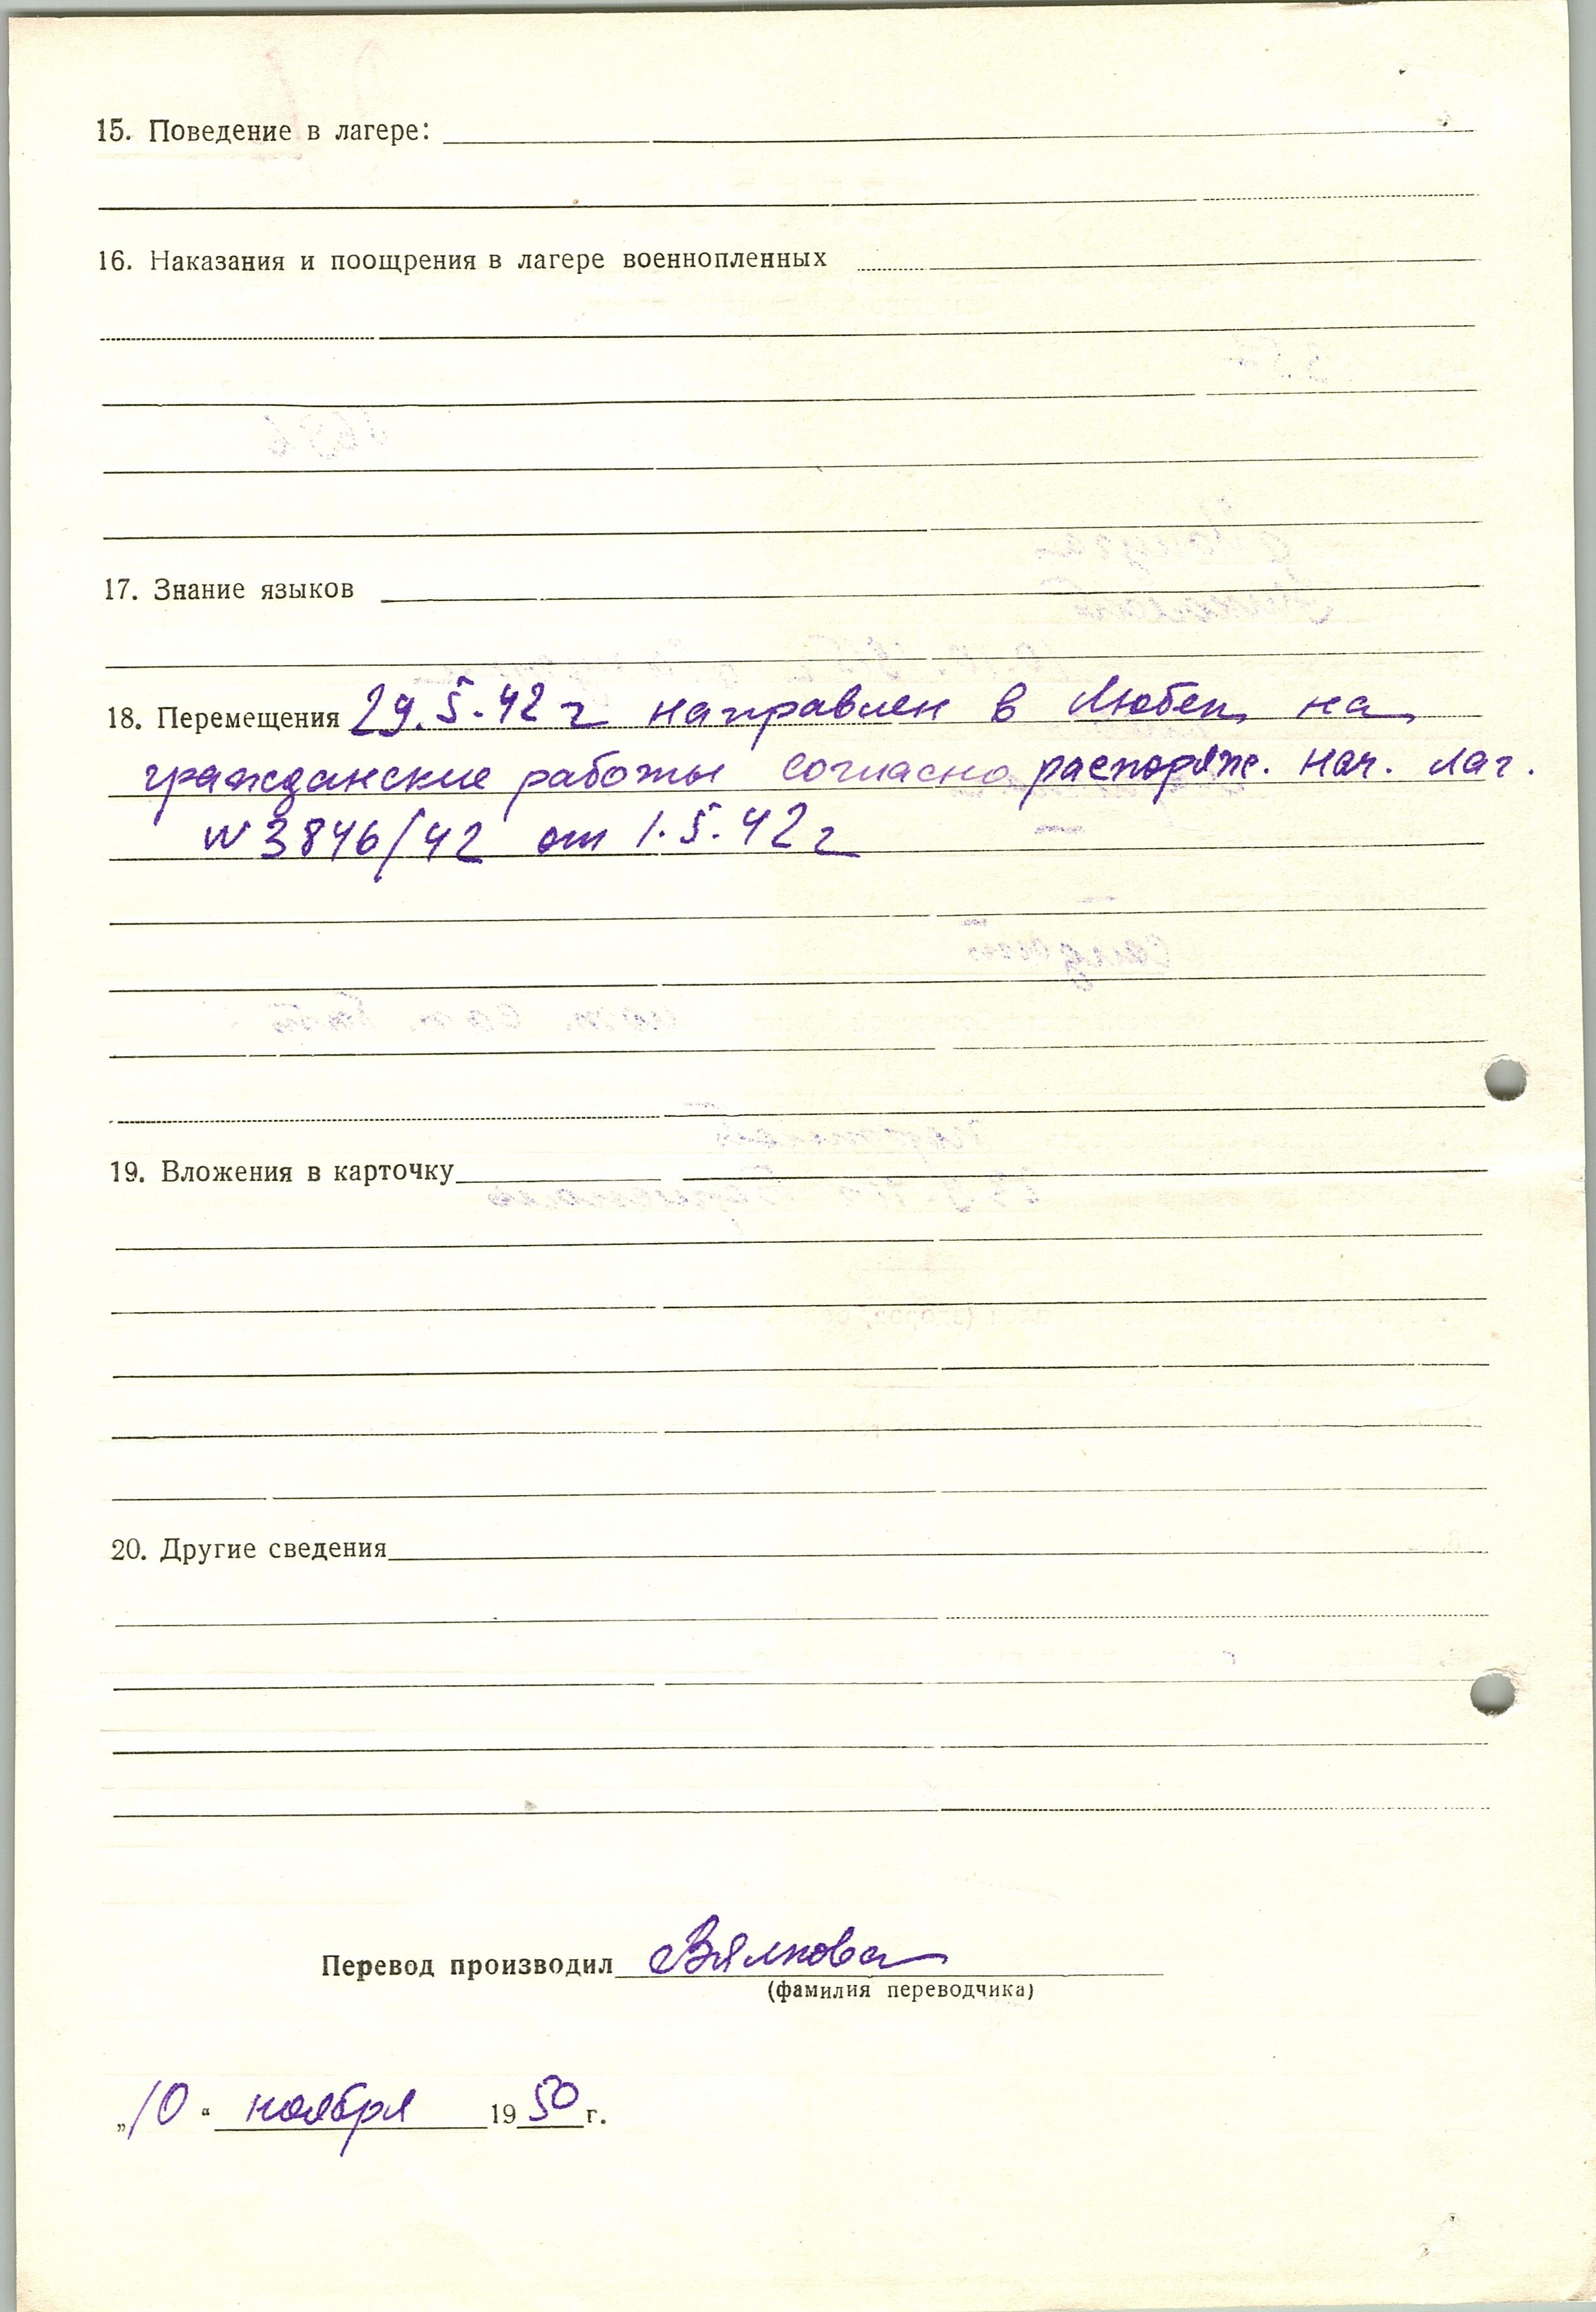 15. Поведение в лагере:
16. Наказания и поощрения в лагере военнопленных
17. Знание языков
18. Перемещения 29.5.42 г направлен в Любек на
гражданские работы согласно распоряж. нач. лаг.
N 3846/42 от 1.5.42 г
19. Вложения в карточку
20. Другие сведения
Перевод производил Вялкова
(фамилия переводчика)
„10“ ноября 1950 г.